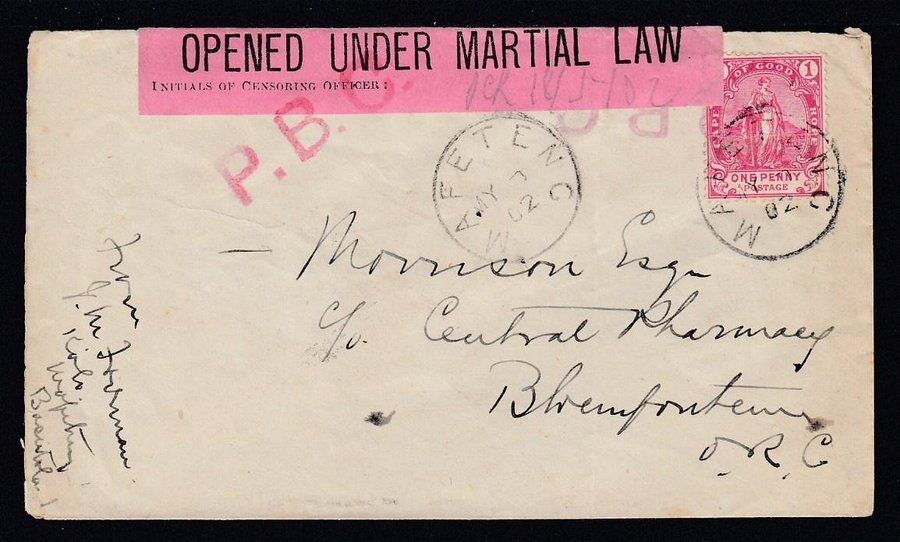 OPENED UNDER MARTIAL LAW
INITIALS OF CENSORING OFFICER:
14/5/02
P.B.C.
OF GOOD HO
1
ONE PENNY
POSTAGE
MAFETENG
MY
02
MAFETENG
02
— Morrison Esqr
c/o. Central Pharmacy
Bloemfontein
O.R.C
From
J.M. Foreman